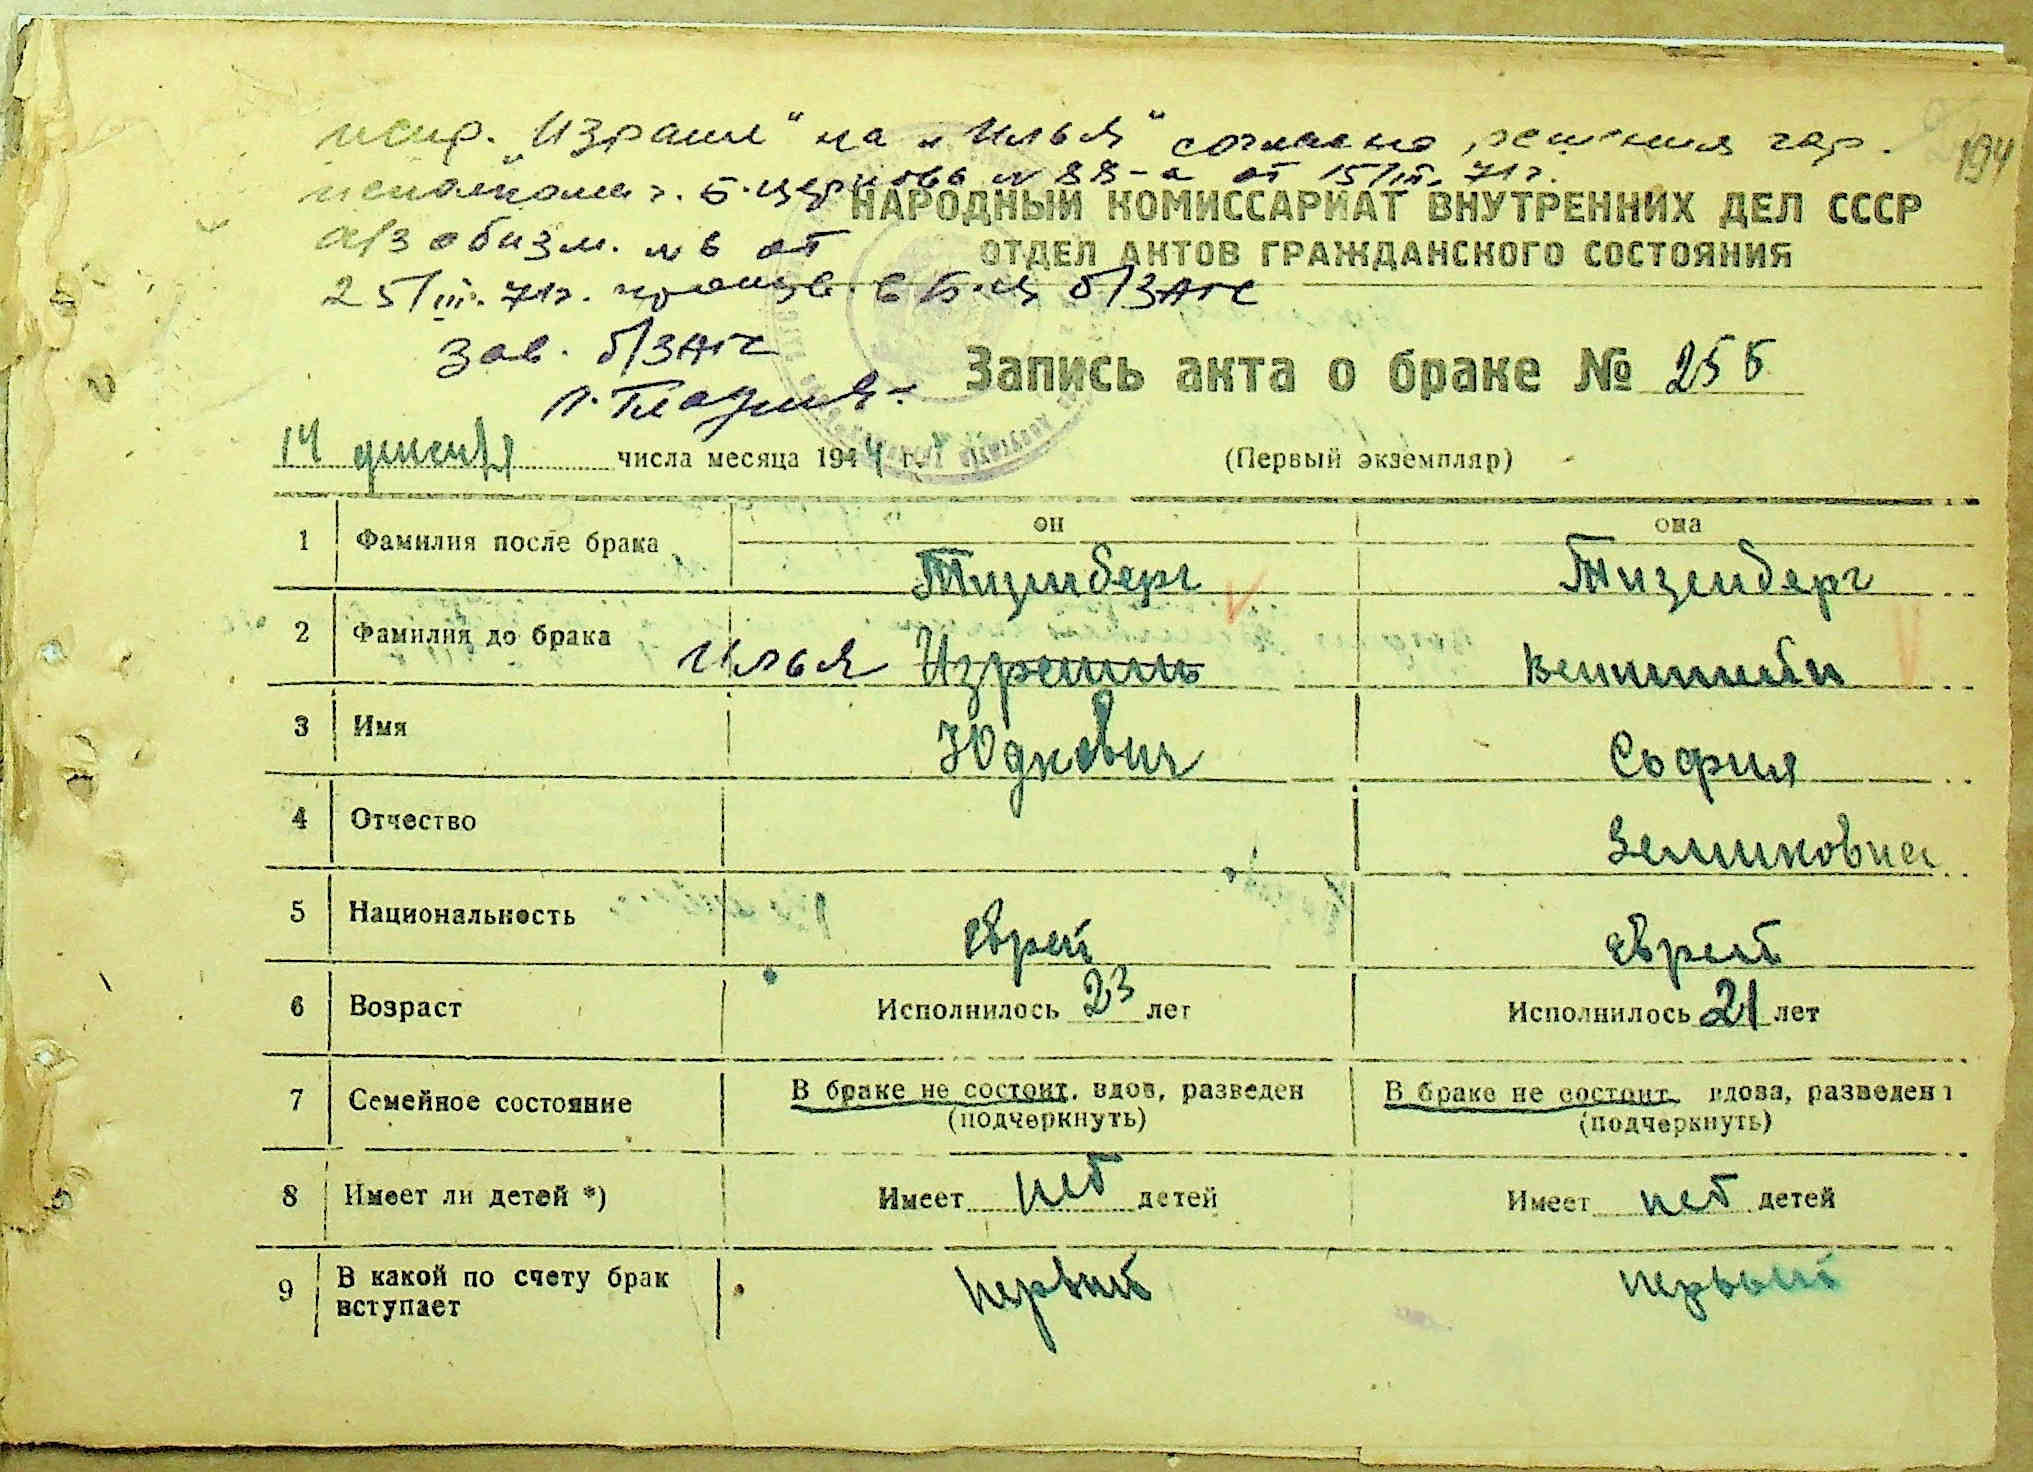 испр. „Израиль“ на „Илья“ согласно решения гор.
исполкома г. Б-Церковь № 88-а от 15/III. 71г.
а/з об изм. № 6 от
25/III. 71г. произв. в Б.Ц б/ЗАГС
Зав. б/ЗАГС
194
НАРОДНЫЙ КОМИССАРИАТ ВНУТРЕННИХ ДЕЛ СССР
ОТДЕЛ АКТОВ ГРАЖДАНСКОГО СОСТОЯНИЯ
Запись акта о браке № 255
14 декабря числа месяца 1944 г.
(Первый экземпляр)
он она
1 Фамилия после брака Тизенберг Тизенберг
2 Фамилия до брака Илья Израиль
3 Имя Юдкович София
4 Отчество Зелиховна
5 Национальность еврей еврей
6 Возраст Исполнилось 23 лет Исполнилось 21 лет
7 Семейное состояние В браке не состоит, вдов, разведен В браке не состоит, вдова, разведен
(подчеркнуть) (подчеркнуть)
8 Имеет ли детей *) Имеет нет детей Имеет нет детей
9 В какой по счету брак вступает первый первый